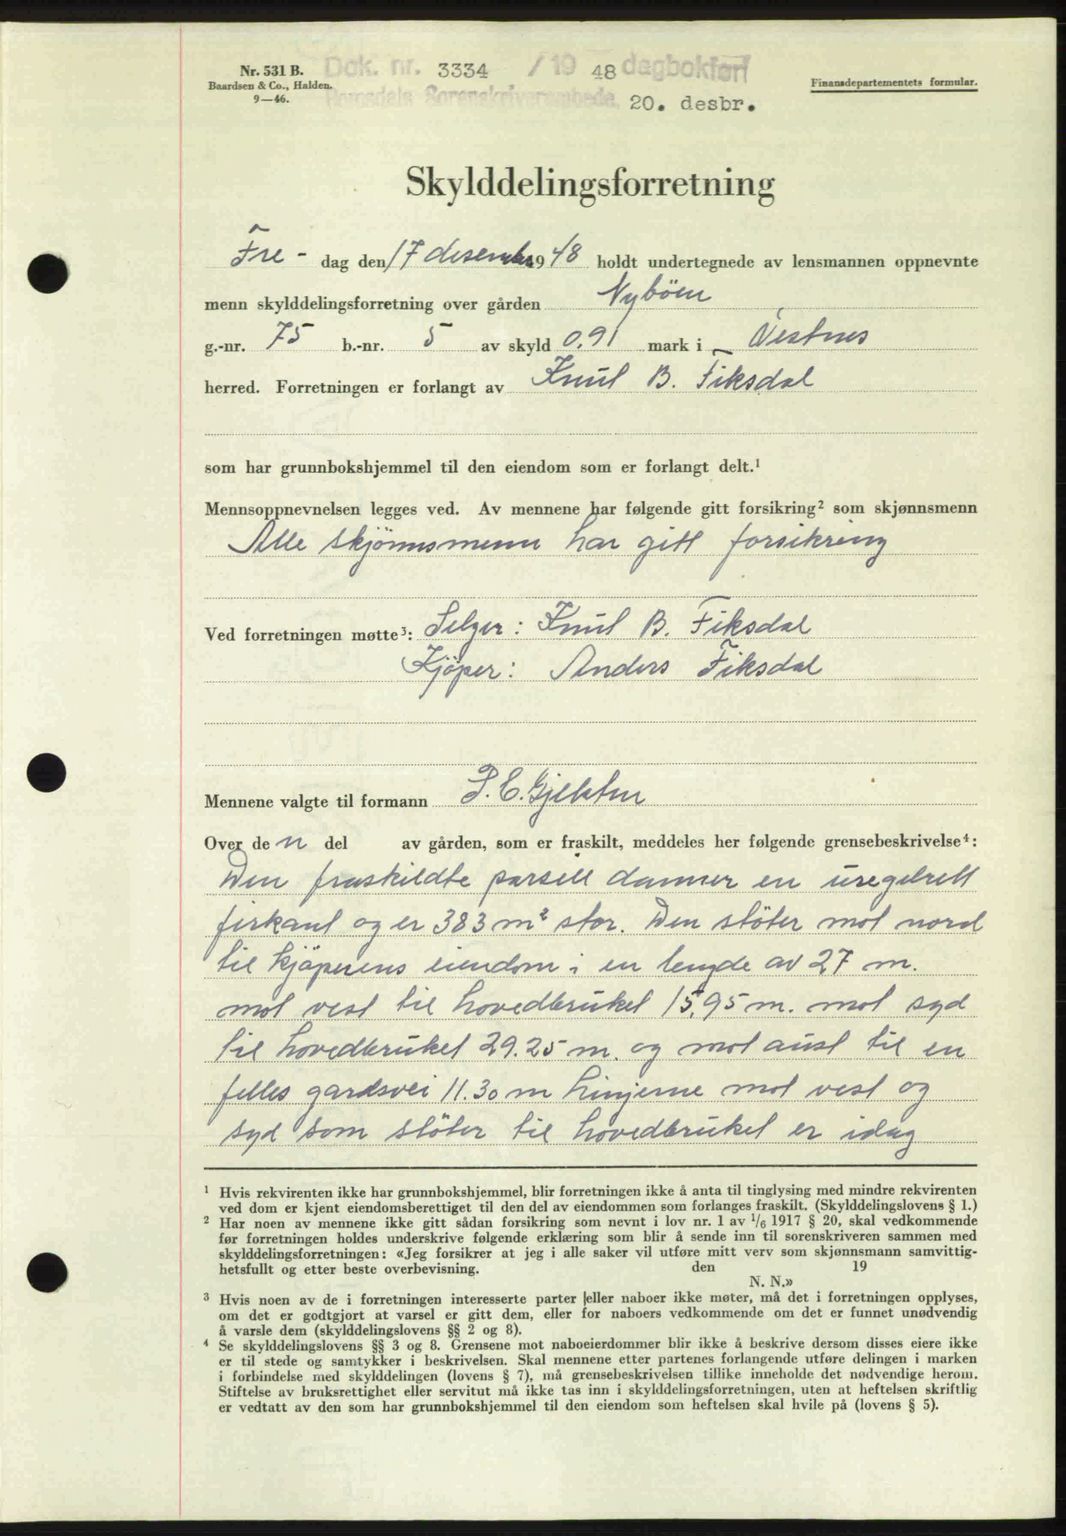 Nr. 531 B.
Baardsen & Co., Halden.
9—46.
Dok. nr. 3334 / 19 48 dagbokført
Romsdals Sorenskriverembede. 20. desbr.
Finansdepartementets formular.
Skylddelingsforretning
Fre - dag den 17 desember 1948 holdt undertegnede av lensmannen oppnevnte
menn skylddelingsforretning over gården Nybøen
g.-nr. 75 b.-nr. 5 av skyld 0,91 mark i Vestnes
herred. Forretningen er forlangt av Knut B. Fiksdal
som har grunnbokshjemmel til den eiendom som er forlangt delt.¹
Mennsoppnevnelsen legges ved. Av mennene har følgende gitt forsikring² som skjønnsmenn
Alle skjønnsmenn har gitt forsikring
Ved forretningen møtte³: Selger: Knut B. Fiksdal
Kjøper: Anders Fiksdal
Mennene valgte til formann P. E. Gjelsten
Over de n del av gården, som er fraskilt, meddeles her følgende grensebeskrivelse⁴:
Den fraskildte parsell danner en uregelrett
firkant og er 383 m² stor. Den støter mot nord
til kjøperens eiendom i en lengde av 27 m.
mot vest til hovedbruket 15,95 m. mot syd
til hovedbruket 29.25 m. og mot aust til en
felles gardsvei 11.30 m Linjerne mot vest og
syd som støter til hovedbruket er idag
¹ Hvis rekvirenten ikke har grunnbokshjemmel, blir forretningen ikke å anta til tinglysing med mindre rekvirenten
ved dom er kjent eiendomsberettiget til den del av eiendommen som forlanges fraskilt. (Skylddelingslovens § 1.)
² Har noen av mennene ikke gitt sådan forsikring som nevnt i lov nr. 1 av ¹/₆ 1917 § 20, skal vedkommende
før forretningen holdes underskrive følgende erklæring som blir å sende inn til sorenskriveren sammen med
skylddelingsforretningen: «Jeg forsikrer at jeg i alle saker vil utføre mitt verv som skjønnsmann samvittig-
hetsfullt og etter beste overbevisning. den 19
N. N.»
³ Hvis noen av de i forretningen interesserte parter eller naboer ikke møter, må det i forretningen opplyses,
om det er godtgjort at varsel er gitt dem, eller for naboers vedkommende om det er funnet unødvendig
å varsle dem (skylddelingslovens §§ 2 og 8).
⁴ Se skylddelingslovens §§ 3 og 8. Grensene mot naboeierdommer blir ikke å beskrive dersom disses eiere ikke
er til stede og samtykker i beskrivelsen. Skal mennene etter partenes forlangende utføre delingen i marken
i forbindelse med skylddelingen (lovens § 7), må grensebeskrivelsen tillike inneholde det nødvendige herom.
Stiftelse av bruksrettighet eller servitut må ikke tas inn i skylddelingsforretningen, uten at heftelsen skriftlig
er vedtatt av den som har grunnbokshjemmel til den eiendom som heftelsen skal hvile på (lovens § 5).